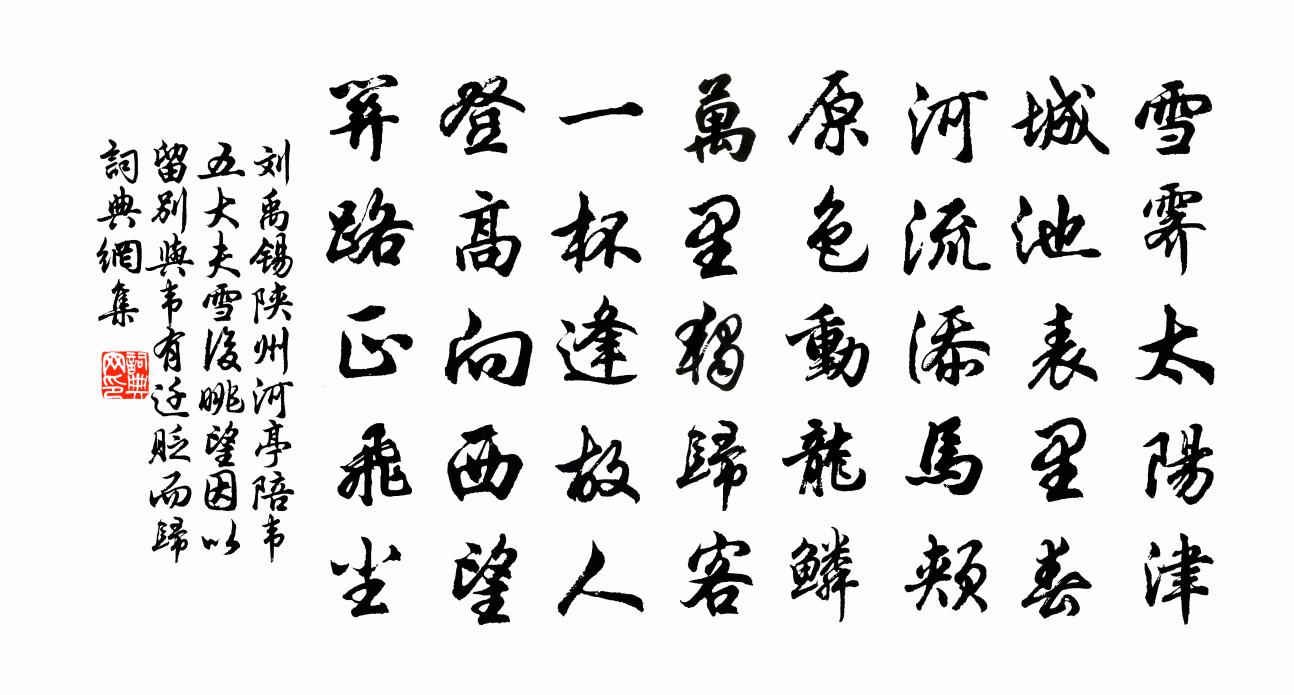 雪霽太陽津
城池表里春
河流添馬頰
原色動龍鱗
萬里獨歸客
一杯逢故人
登高向西望
關路正飛尘
刘禹锡陕州河亭陪韦
五大夫雪後眺望因以
留别與韦有迁贬而歸
詞典網集
詞典网印